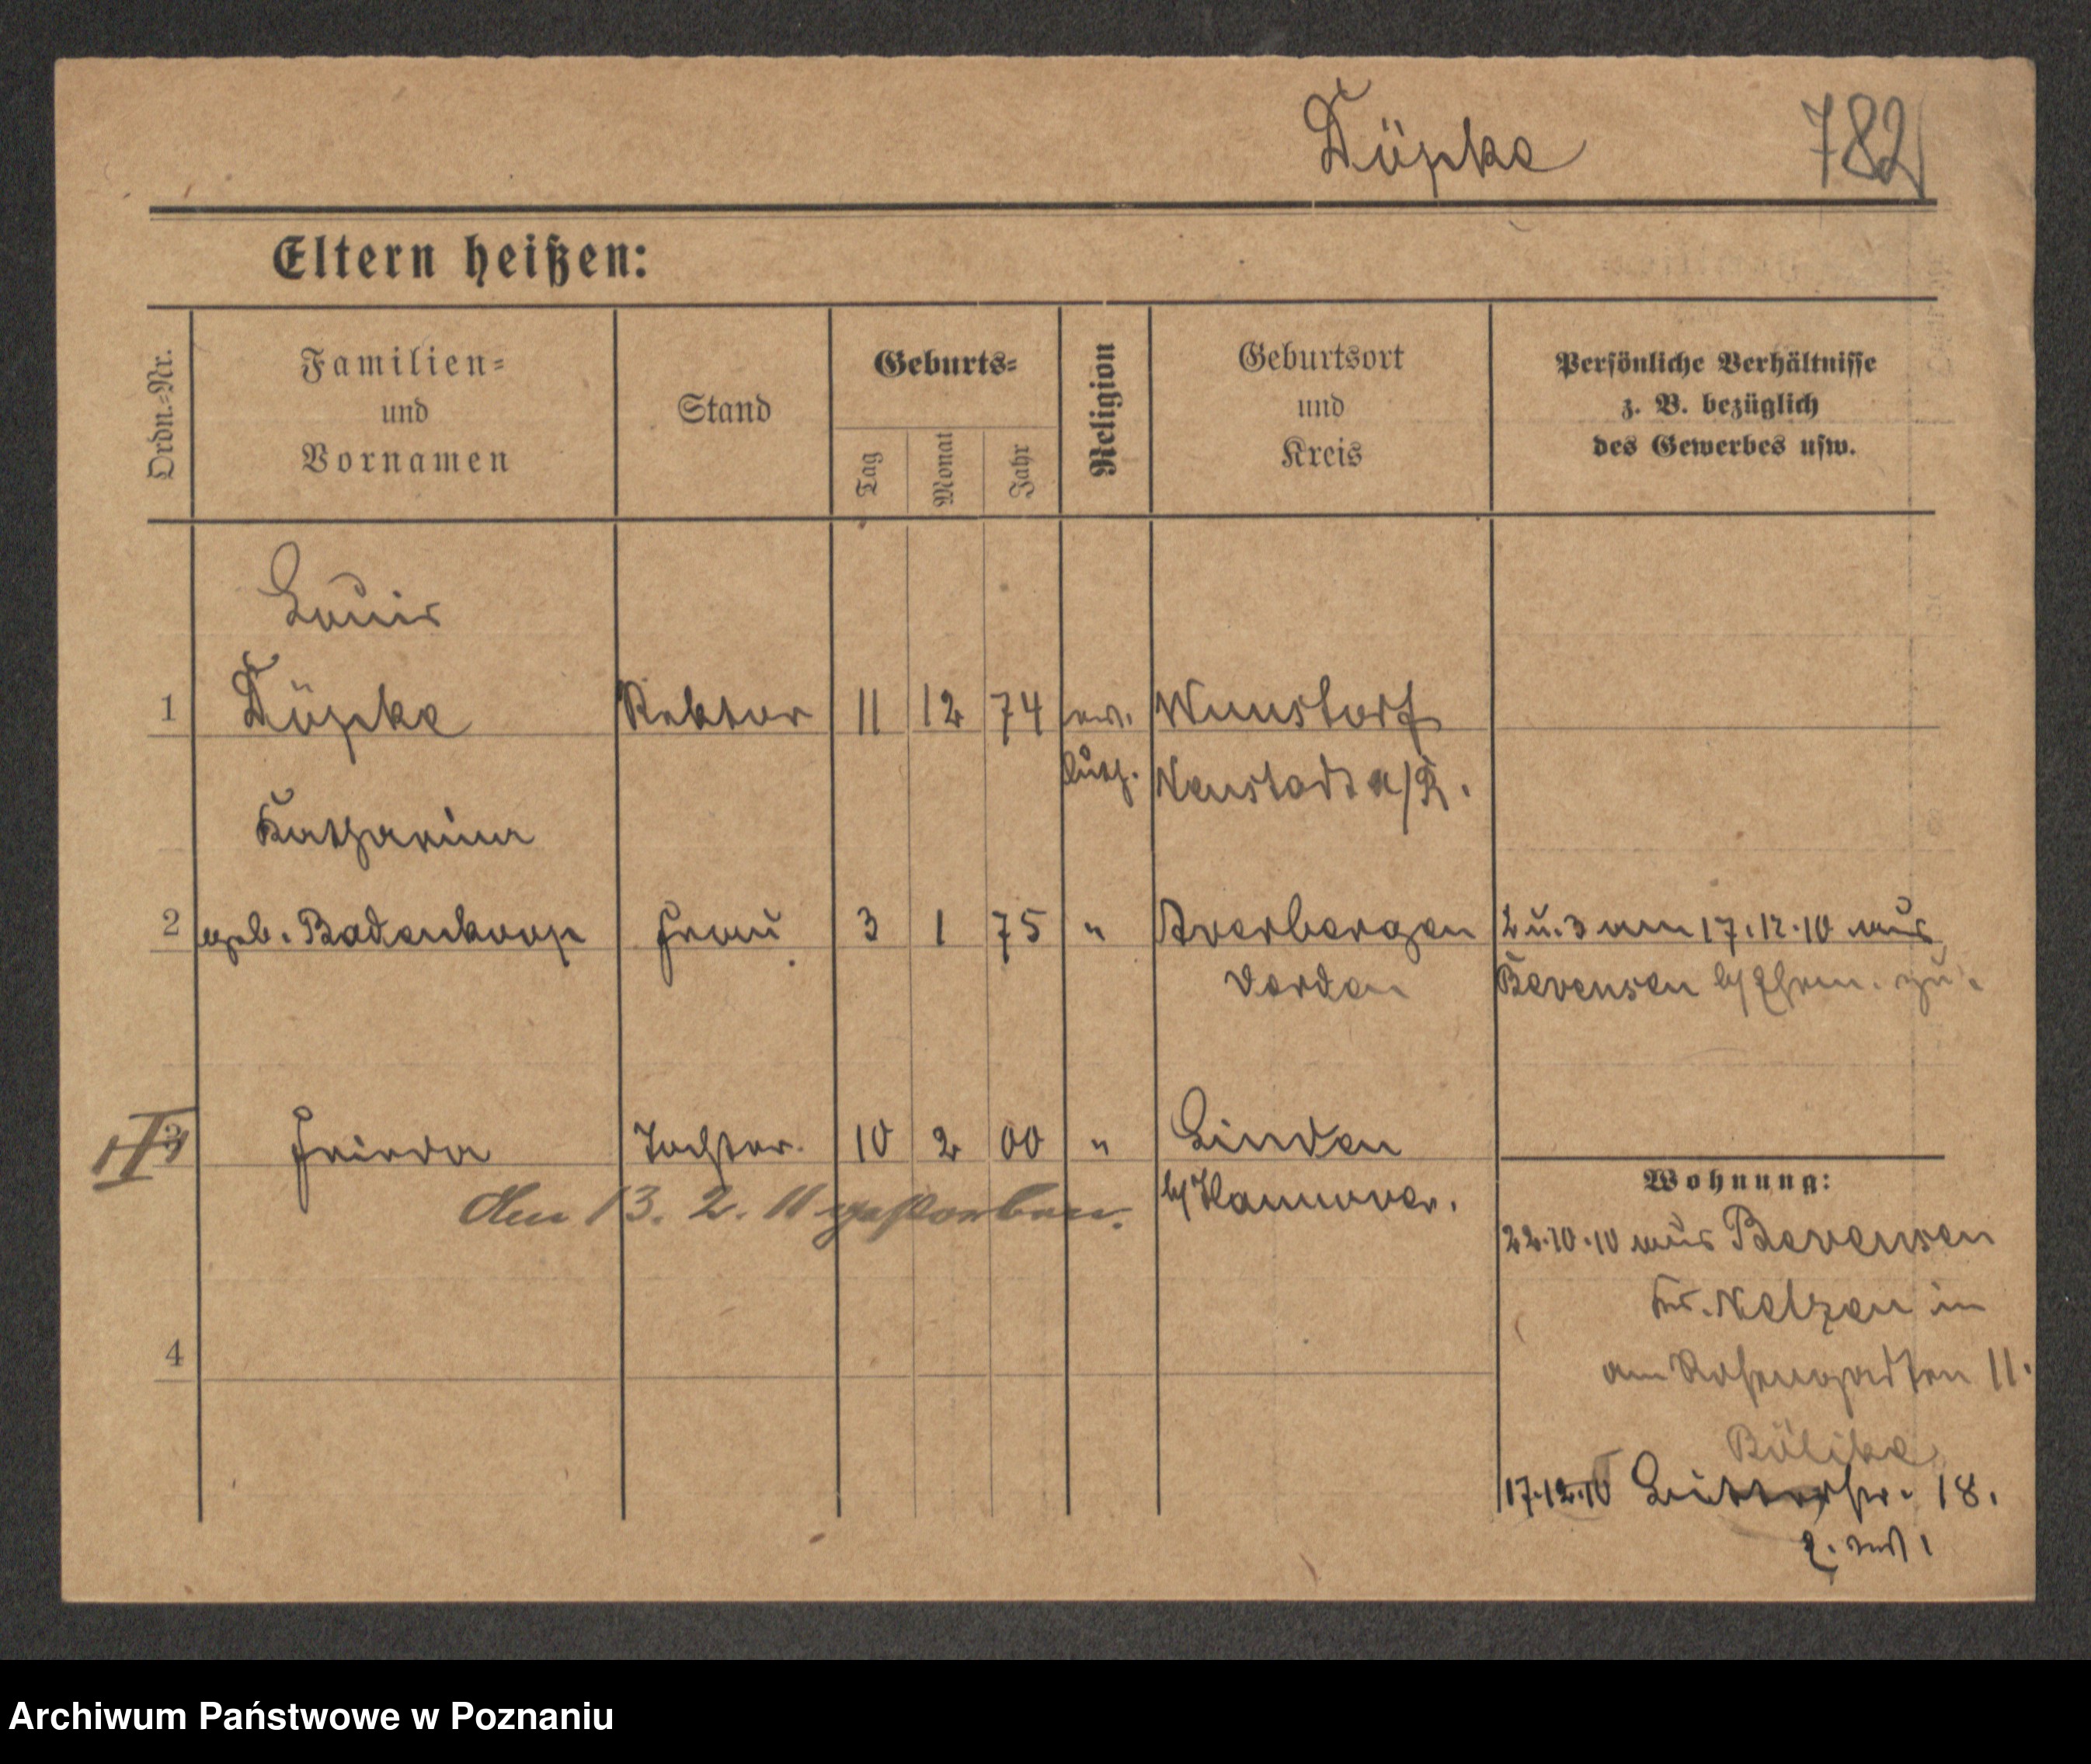 Döpke 782
Eltern heißen:
Ordn.-Nr.
Familien-
und
Vornamen
Stand
Geburts-
Tag
Monat
Jahr
Religion
Geburtsort
und
Kreis
Persönliche Verhältnisse
z. B. bezüglich
des Gewerbes usw.
Louis
1 Döpke Rektor 11 12 74 ev. Wunstorf
luth. Neustadt a/R.
Katharina
2 geb. Badenhoop Frau 3 1 75 " Averbergen 2 u. 3 am 17.12.10 aus
Verden Bevensen b/Ehem. zu.
3 Frieda Tochter. 10 2 00 " Linden
b/Hannover.
den 13. 2. 11 gestorben.
Wohnung:
22.10.10 aus Bevensen
Kr. in
am 11.
4
17.12.10 18.
Archiwum Państwowe w Poznaniu